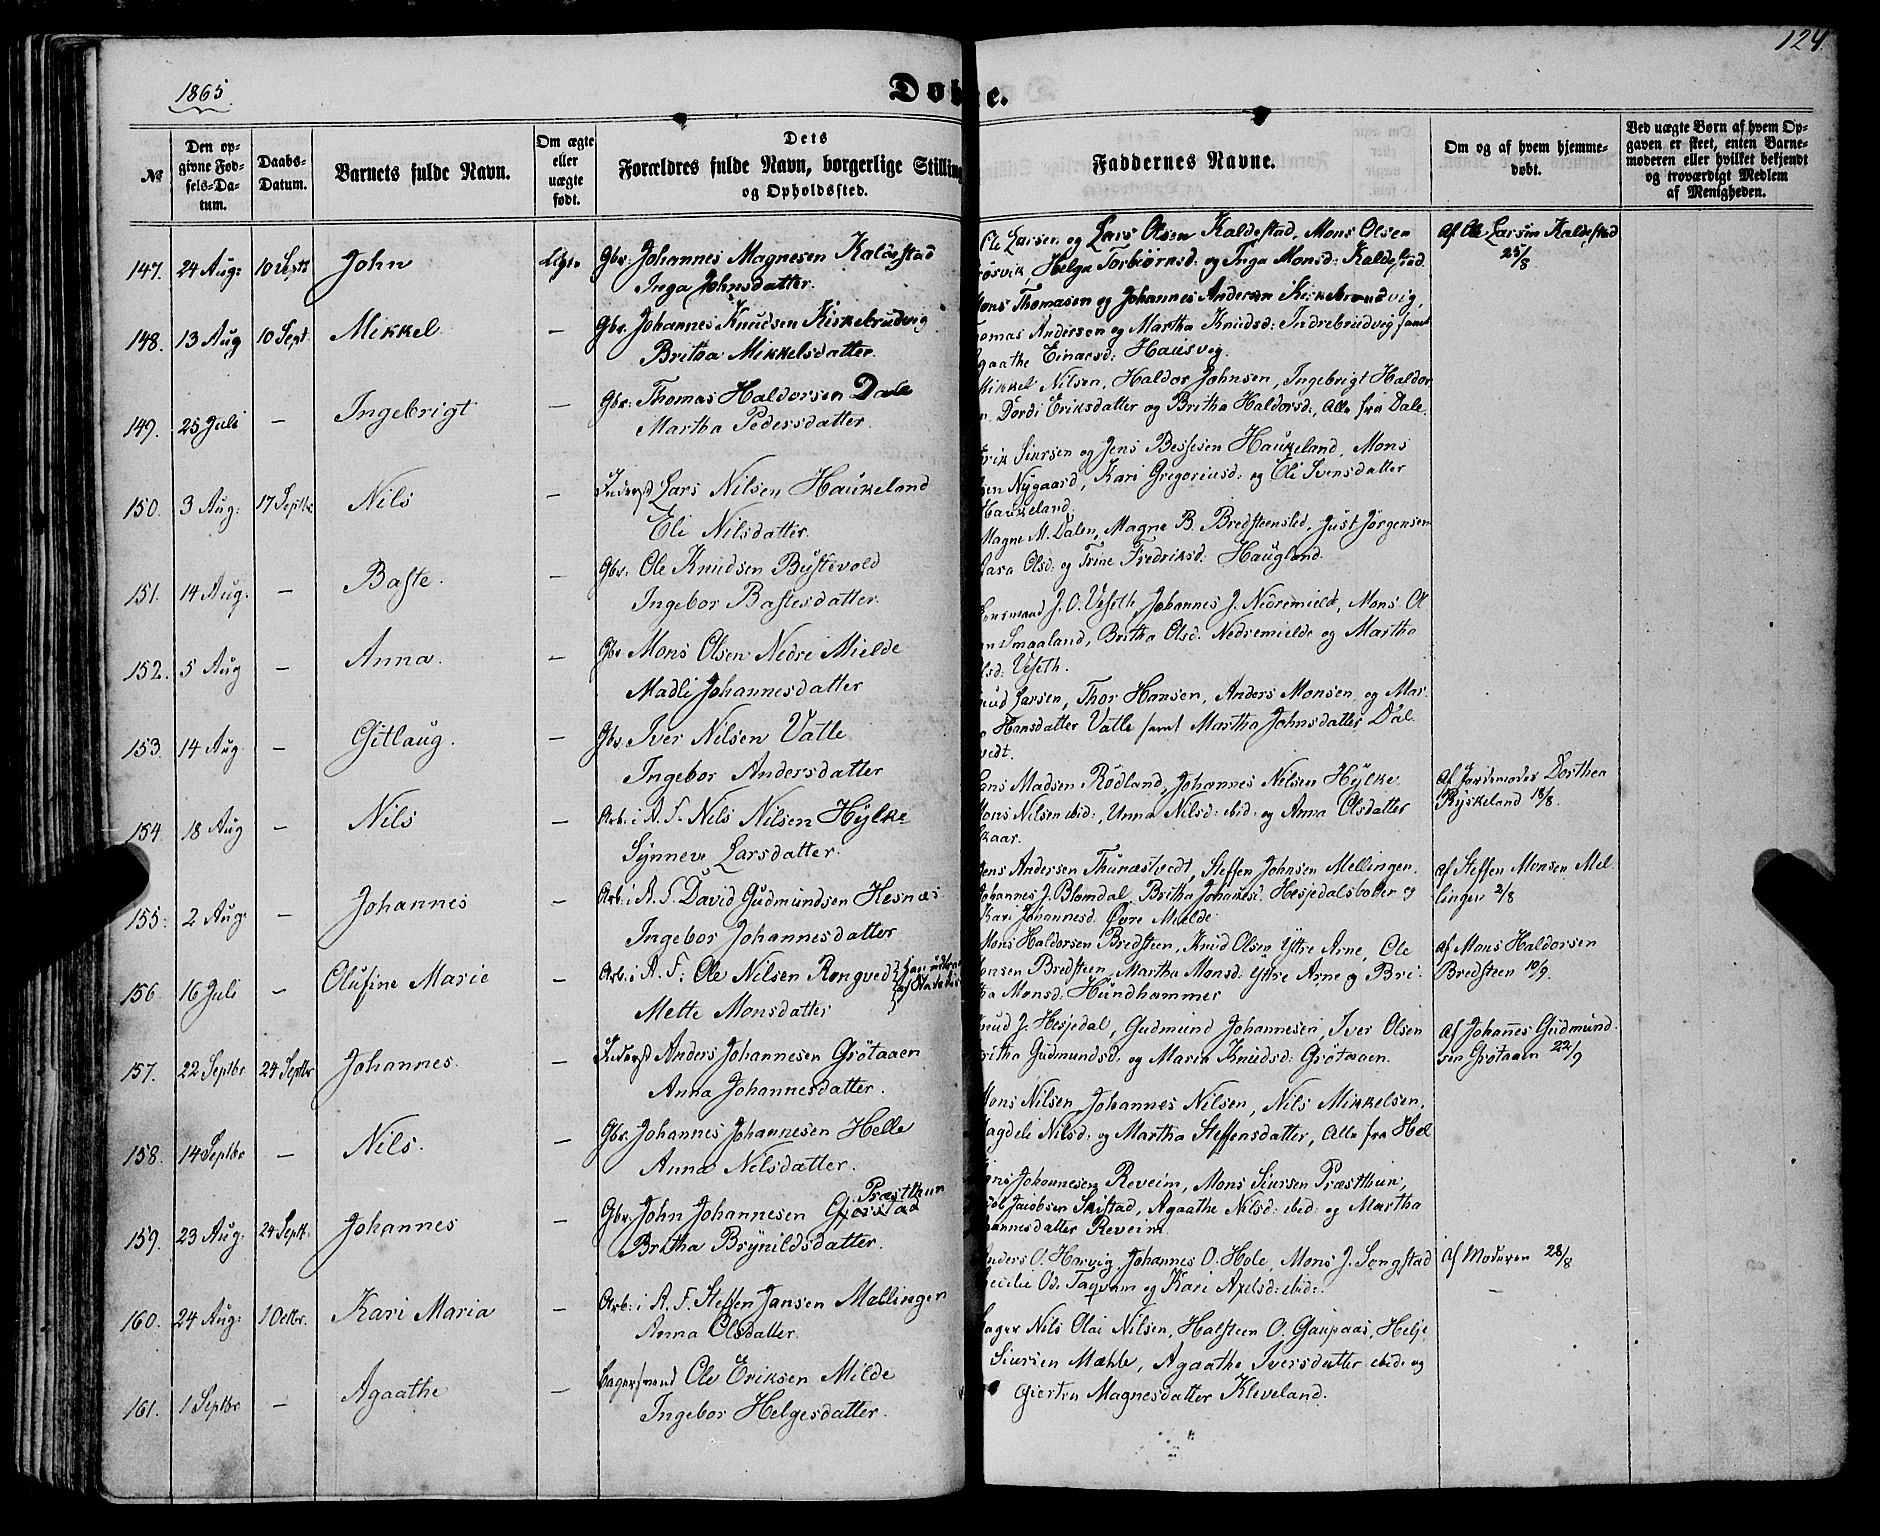 124.
1865.
Døbte.
No
Den opgivne Fødsels-Datum.
Daabs-Datum.
Barnets fulde Navn.
Om ægte eller uægte født.
Dets Forældres fulde Navn, borgerlige Stilling og Opholdssted.
Faddernes Navne.
Om og af hvem hjemmedøbt.
Ved uægte Børn af hvem Opgaven er skeet, enten Barnemoderen eller hvilket bekjendt og troværdigt Medlem af Menigheden.
147. 24 Aug: 10 Septb John Ægte Gbr. Johannes Magnesen Kaldestad
Inga Johnsdatter.
Ole Larsen og Lars Olsen Kaldestad, Mons Olsen
Helga Torbiørnsd: og Inga Monsd: Kaldestad.
Af Ole Larsen Kaldestad
25/8
148. 13 Aug 10 Sept. Mikkel — Gbr. Johannes Knudsen Kirkebrudvig
Britha Mikkelsdatter.
Mons Thomasen og Johannes Andersen Kirkebrudvig,
Thomas Andersen og Martha Knudsd: Indrebrudvig samt
Agaathe Einarsd: Hausvig.
149. 25 Juli — Ingebrigt — Gbr: Thomas Haldorsen Dale
Martha Pedersdatter.
Mikkel Nilsen, Haldor Johnsen, Ingebrigt Haldor
Dordi Eriksdatter og Britha Haldorsd:, Alle fra Dale.
150. 3 Aug: 17 Septbr Nils — Inderst Lars Nilsen Haukeland
Eli Nilsdatter.
Erik Siursen og Jens Bessesen Haukeland, Mons
Nygaard, Kari Gregoriusd: og Eli Svensdatter
Haukeland.
151. 14 Aug. — Baste. — Gbr: Ole Knudsen Bustevold
Ingebor Bastesdatter.
Magne M. Dalen, Magne B. Bredsteensled, Just Jørgensen
Olsd: og Trine Fredriksd: Haugland.
152. 5 Aug — Anna. — Gbr Mons Olsen Nedre Mielde
Madli Johannesdatter
Lensmand J. O. Veseth, Johannes J. Nedremielde, Mons Ol
Smaaland, Britha Olsd: Nedremielde og Martha
Olsd: Veseth.
153. 14 Aug — Gitlaug. — Gbr. Iver Nilsen Vatle.
Ingebor Andersdatter
Knud Larsen, Thor Hansen, Anders Monsen og Mar-
Hansdatter Vatle samt Martha Johnsdatter Dal
vedt.
154. 18 Aug — Nils — Arb: i A. F. Nils Nilsen Hylke
Synneve Larsdatter.
Madsen Rødland, Johannes Nilsen Hylke
Mons Nilsen ibid:, Unna Nilsd: ibid: og Anna Olsdatter
Skaar.
Af Jordemoder Dorthea
Ryskeland 18/8.
155. 2 Aug: — Johannes — Arb: i A. F. David Gudmundsen Hesnæs
Ingebor Johannesdatter
Jens Andersen Thunæstvedt, Steffen Johnsen Mellingen.
Johannes J. Blomdal, Britha Johannesd. Hesjedalsbotten og
Kari Johannesd: Øvre Mielde.
af Steffen Monsen Mel
lingen 2/8
156 16 Juli — Olufine Marie — Arb: i A. F: Ole Nilsen Rongved
Mette Monsdatter
Mons Haldorsen Bredsteen, Knud Olsen Yttre Arne, Ole
Monsen Bredsteen, Martha Monsd: Yttre Arne og Bri-
tha Monsd: Hundhammer
af Mons Haldorsen
Bredsteen 10/9.
157. 22 Septbr 24 Septbr Johannes. — Inderst Anders Johannesen Grøtaaen
Anna Johannesdatter.
Knud J. Hesjedal, Gudmund Johannesen, Iver Olsen
Britha Gudmundsd. og Maria Knudsd: Grøtaaen.
af Johannes Gudmund-
sen Grøtaaen 22/9
158. 14 Septbr — Nils. — Gbr. Johannes Johannesen Helle
Anna Nilsdatter.
Mons Nilsen, Johannes Nilsen, Nils Mikkelsen.
Magdele Nilsd: og Martha Steffensdatter, Alle fra Hel
159. 23 Aug: 24 Septb: Johannes — Gbr. John Johannesen Præstthun
Britha Brynildsdatter.
Johannesen Reveim, Mons Siursen Præstthun,
Jacobsen Skistad, Agaathe Nilsd: ibid: og Martha
Johannesdatter Reveim.
160. 24 Aug: 1 Octbr. Kari Maria — Arb: i A. F. Steffen Jansen Mellingen
Anna Olsdatter.
Anders O. Harvig, Johannes O. Hole, Mons J. Songstad
Cecilie Od: Taqvam og Kari Axelsd: ibid:.
af Moderen 28/8
161. 1 Septbr — Agaathe — Bagersvend Ole Eriksen Milde
Ingebor Helgesdatter.
Bager Nils Olai Nilsen, Halsteen O. Gaupaas, Helje
Siursen Mæhle, Agaathe Iversdatter ibid: og
Giertru Magnesdatter Kleveland.